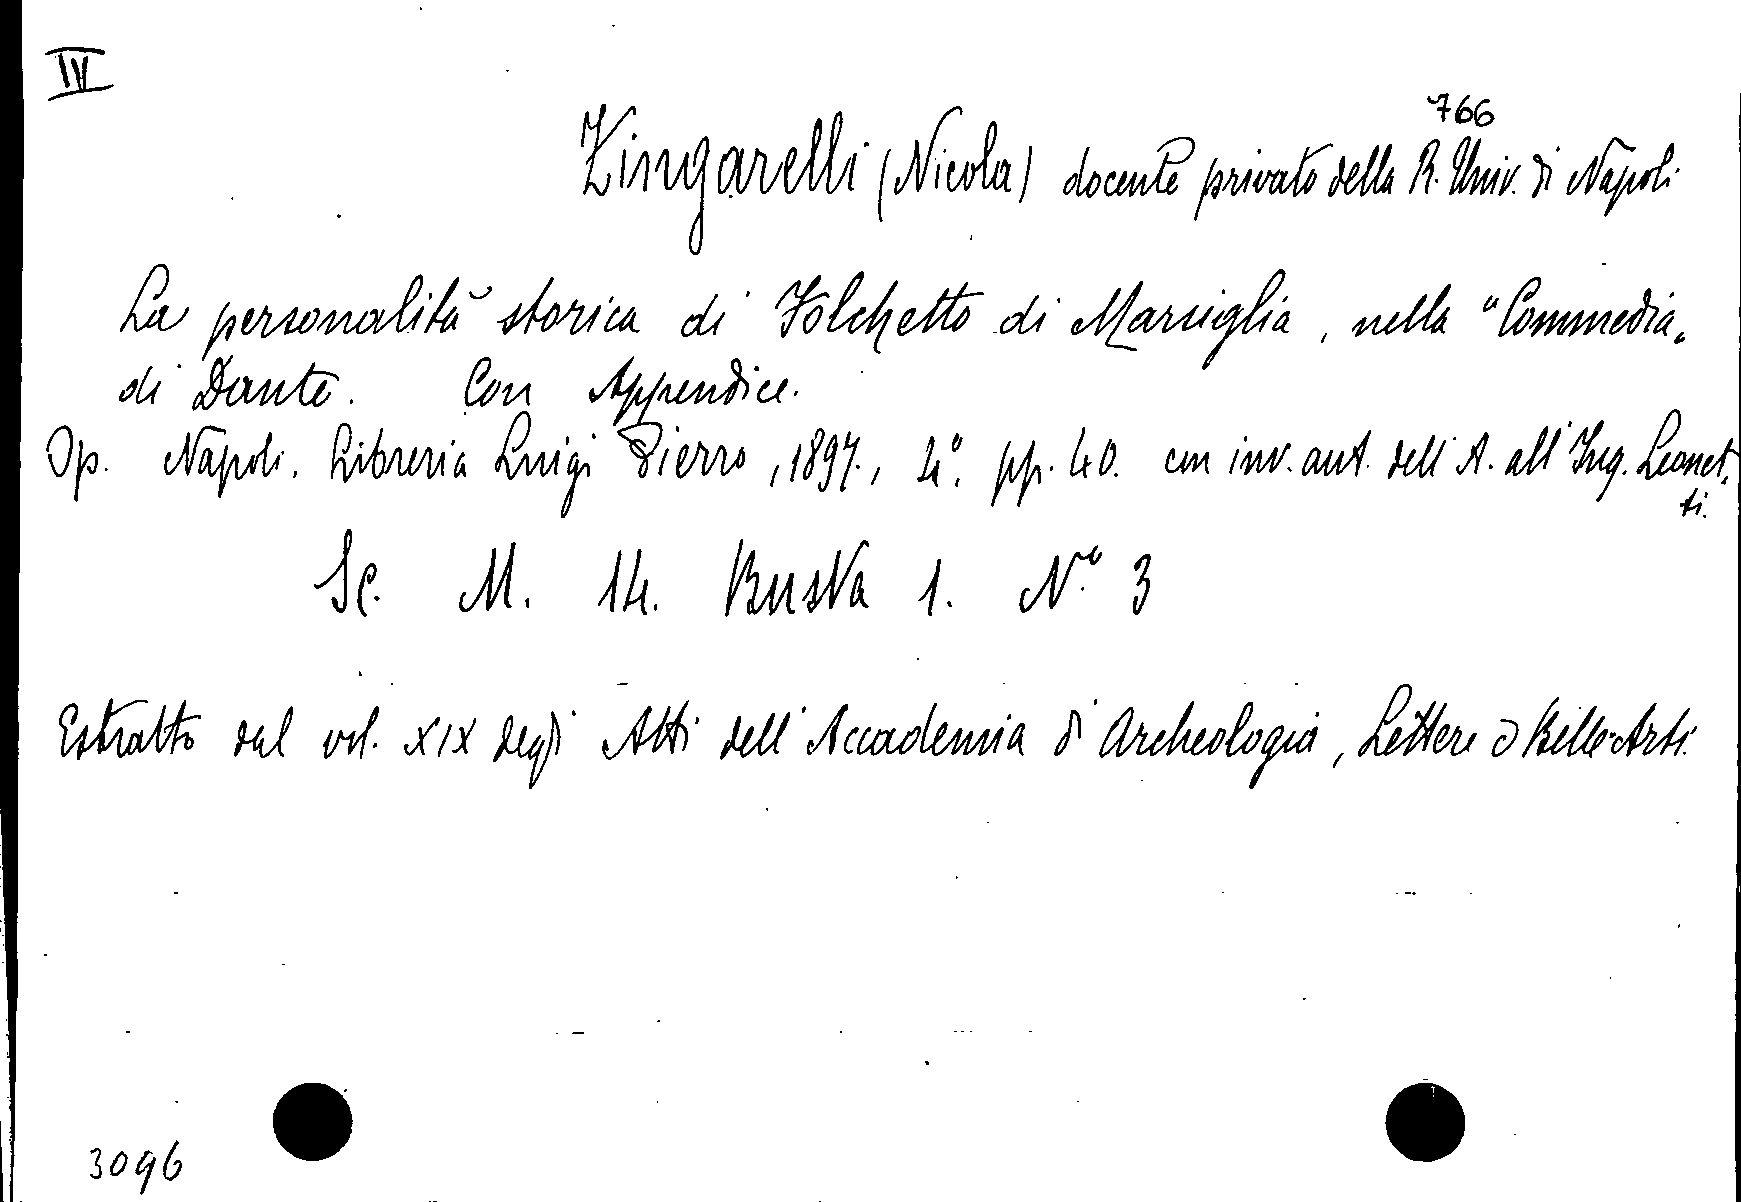 IV
766
Zingarelli (Nicola) docente privato della R. Univ. di Napoli
La personalità storica di Folchetto di Marsiglia, nella "Commedia„
di Dante. Con Appendice.
Op. Napoli. Libreria Luigi Pierro, 1897., 4°. pp. 40. con inv. aut. dell'A. all'Ing. Leonet-
ti.
Sc. M. 14. Busta 1. N.° 3
Estratto dal vol. XIX degli Atti dell'Accademia di Archeologia, Lettere e Belle-Arti.
3096